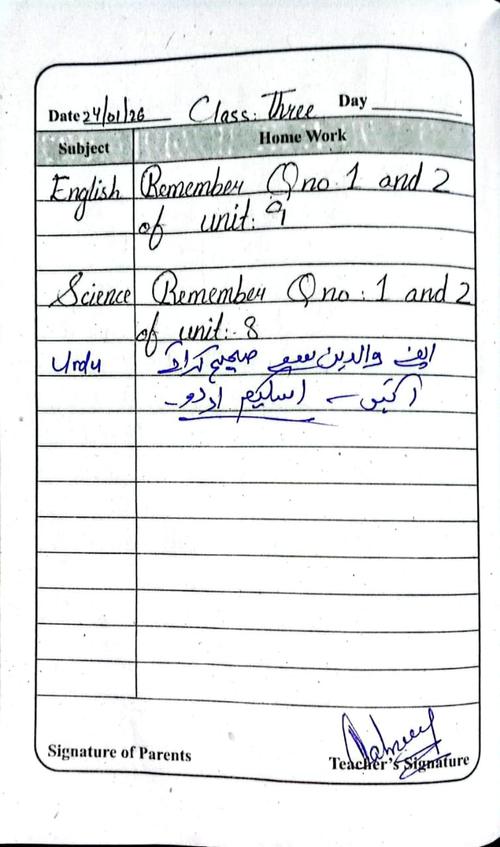 Date 24/01/26 Class: Three Day
Subject Home Work
English Remember Q no 1 and 2
of unit: 9
Science Remember Q no: 1 and 2
of unit: 8
Urdu اپنے والدین سے صحیح کراکر
آئیں۔ اسکیم اردو۔
Signature of Parents Teacher's Signature